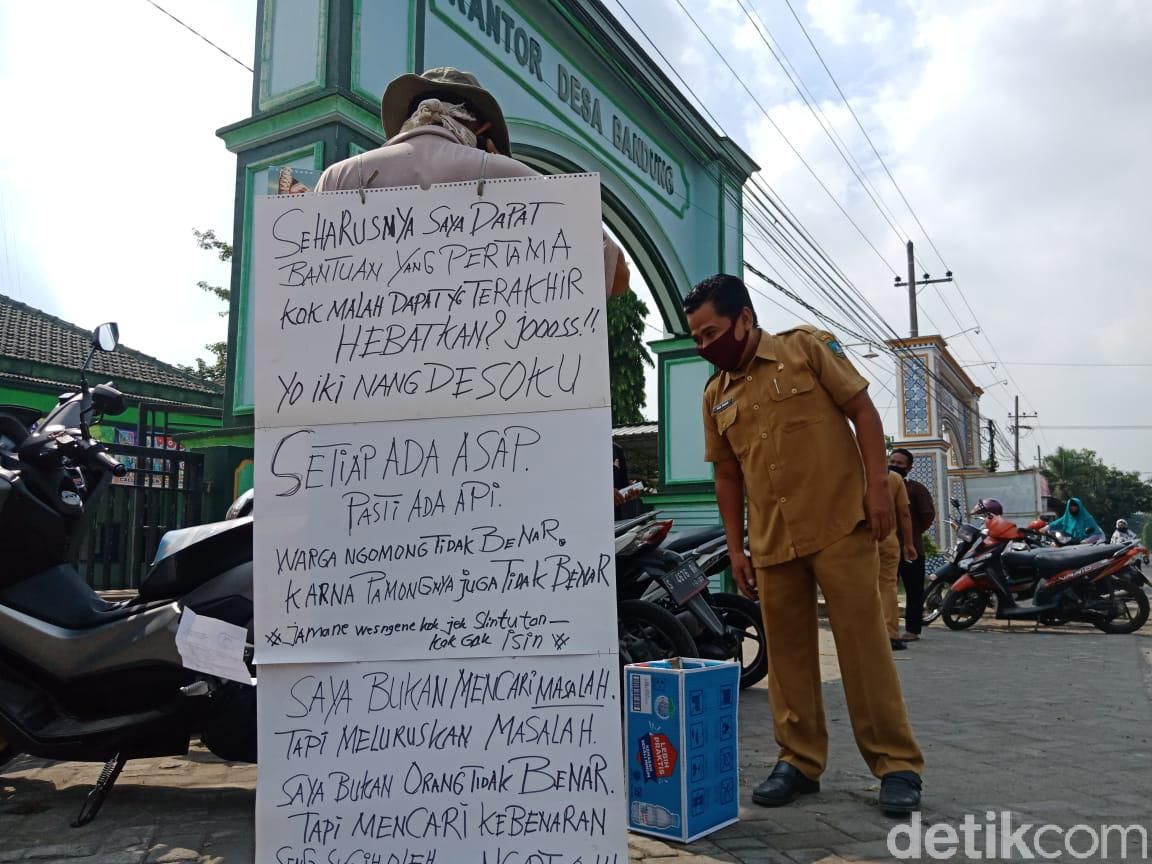 KANTOR DESA BANDUNG
SEHARUSNYA SAYA DAPAT
BANTUAN YANG PERTAMA
KOK MALAH DAPAT YG TERAKHIR
HEBATKAN? joooss!!
YO IKI NANG DESOKU
SETIAP ADA ASAP.
PASTI ADA API.
WARGA NGOMONG TIDAK BENAR.
KARNA PAMONGNYA JUGA TIDAK BENAR
JAMANE WES NGENE KOK JEK SLINTUTAN
KOK GAK ISIN
SAYA BUKAN MENCARI MASALAH.
TAPI MELURUSKAN MASALAH.
SAYA BUKAN ORANG TIDAK BENAR.
TAPI MENCARI KEBENARAN
LEBIH
PRAKTIS
VARIO
detikcom